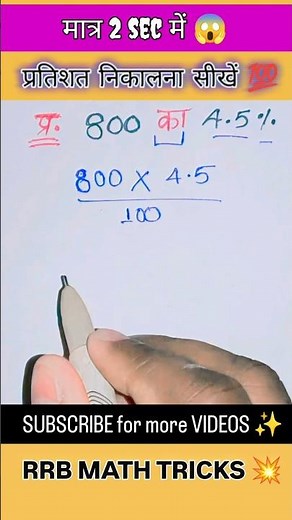 मात्र 2 SEC में 😱
प्रतिशत निकालना सीखें 💯
प्र. 800 का 4.5%
800 X 4.5
100
SUBSCRIBE for more VIDEOS ✨
RRB MATH TRICKS 💥